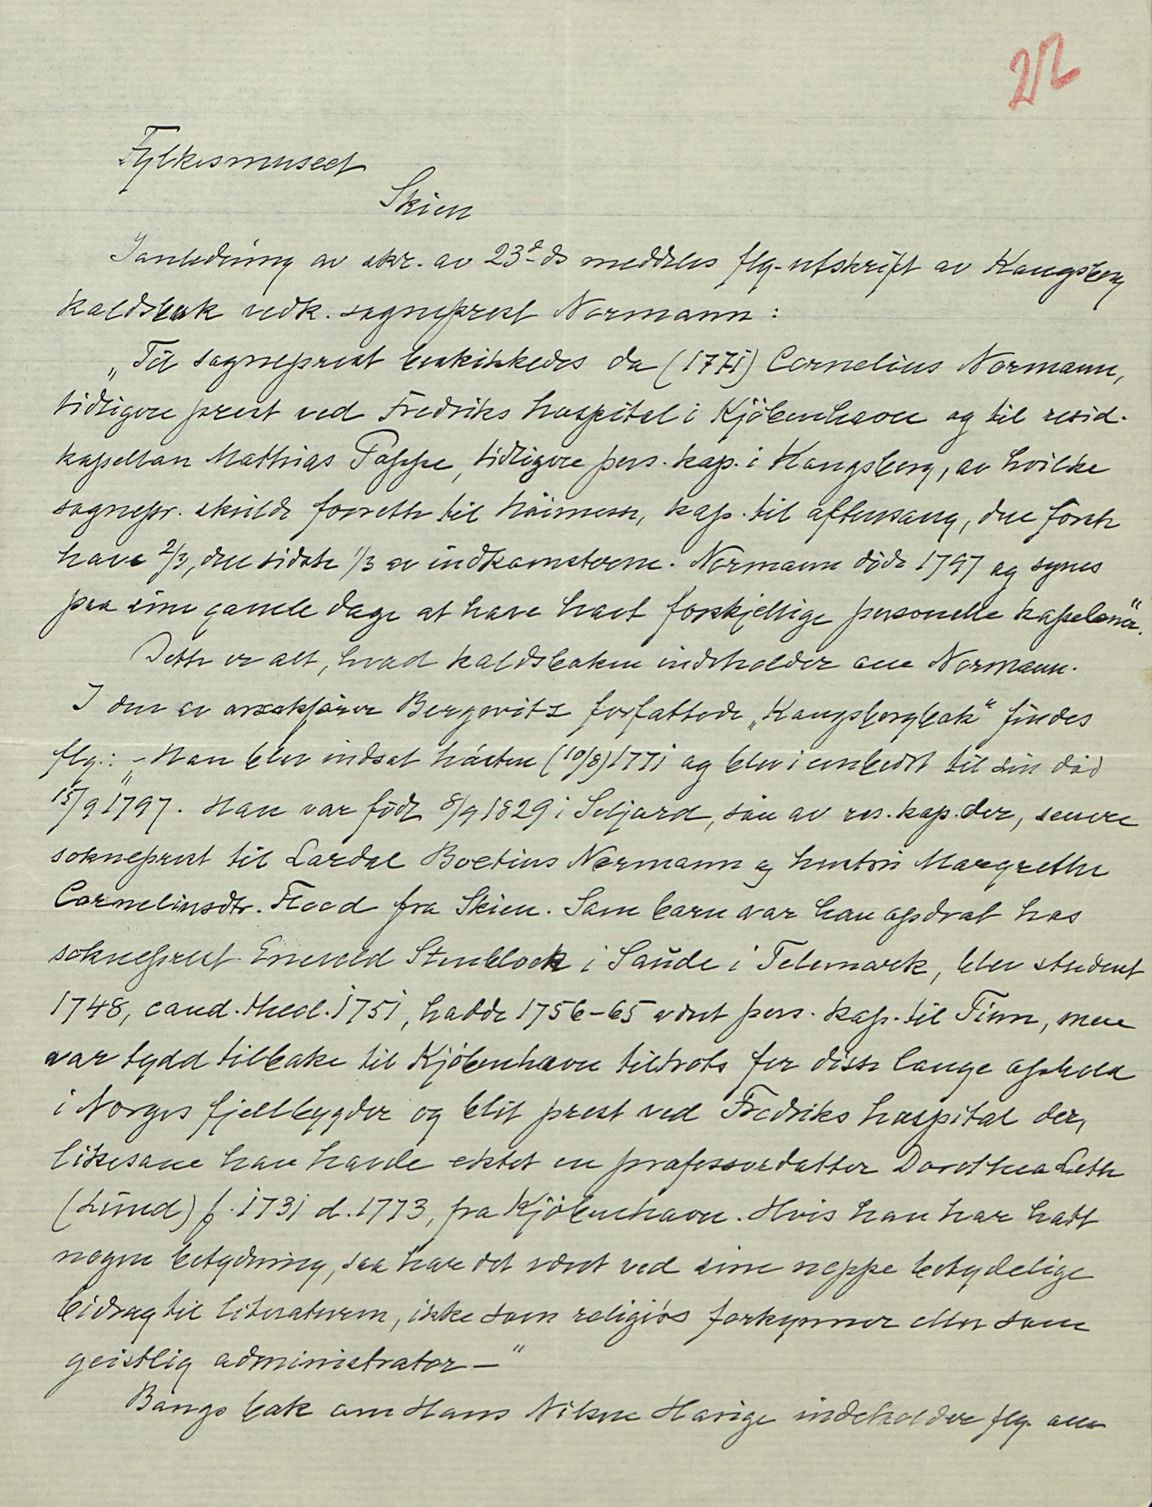 212
Fylkesmuseet
Skien
I anledning av skr. av 23d ds meddeles flg. utskrift av Kongsberg
kaldsbok vedk. sogneprest Normann:
„Til sogneprest beskikkedes da (1771) Cornelius Normann,
tidligere prest ved Fredriks hospital i Kjöbenhavn og til resid.
kapellan Mathias Poppe, tidligere pers. kap. i Kongsberg, av hvilke
sognepr. skulde forrette til höimesse, kap. til aftensang, den förste
have 2/3, den sidste 1/3 av indkomsterne. Normann döde 1797 og synes
paa sine gamle dage at have havt forskjellige personelle kapelaner".
Dette er alt, hvad kaldsboken indeholder om Normann.
I den av overskjærer Bergwitz forfattede „Kongsbergbok" findes
flg.: „- Han blev indsat hösten (10/8) 1771 og blev i embedet til sin död
15/9 1797. Han var födt 8/9 1829 i Seljord, sön av res. kap. der, senere
sokneprest til Lardal Boetius Normann og hustru Margrethe
Cornelinsdtr. Flood fra Skien. Som barn var han opdrat hos
sokneprest Enevold Stenblock i Saude i Telemark, blev student
1748, cand. theol. 1751, hadde 1756-65 været pers. kap. til Tinn, men
var tydd tilbake til Kjöbenhavn tiltrots for disse lange ophold
i Norges fjellbygder og blit prest ved Fredriks hospital der,
likesom han havde ektet en professordatter Dorothea Leth
(Lund) f. 1731 d. 1773, fra Kjöbenhavn. Hvis han har hatt
nogen betydning, saa har det været ved sine neppe betydelige
bidrag til literaturen, ikke som religiös forkynner eller som
geistlig administrator -"
Bangs bok om Hans Nilsen Hauge indeholder flg. om